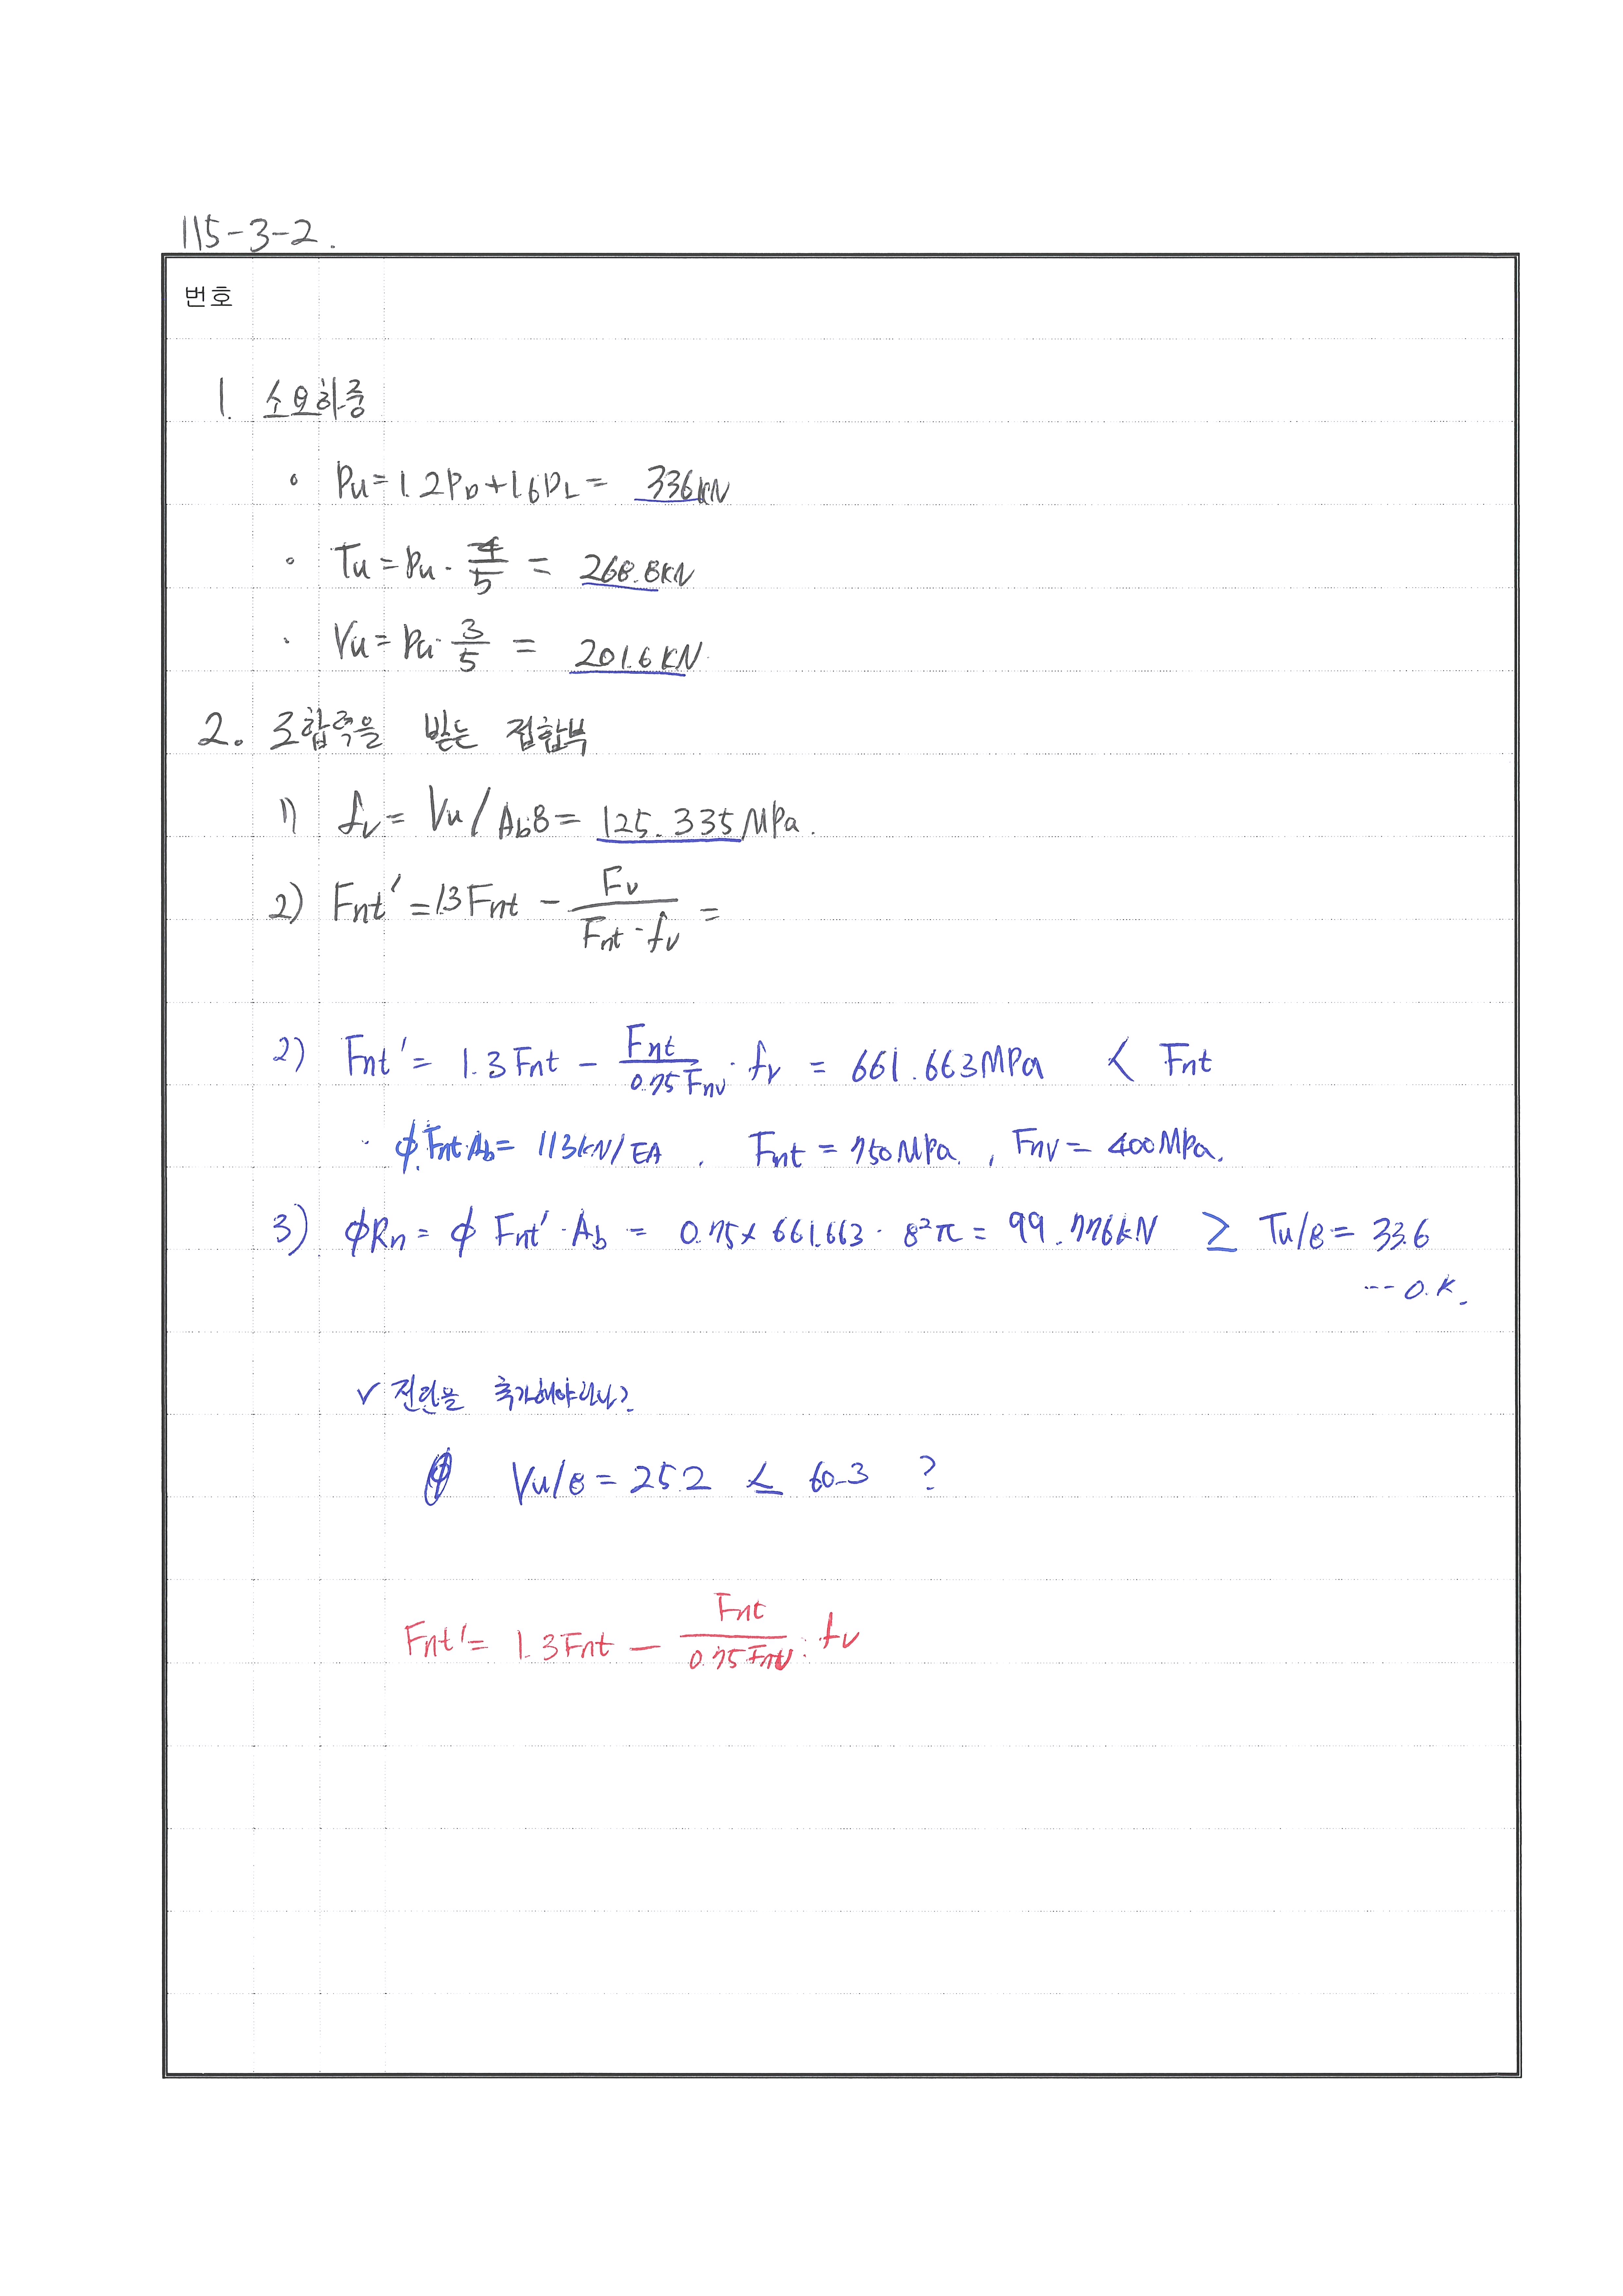 115-3-2.
번호
1. 소요하중
∘ Pu = 1.2PD + 1.6PL = 336kN
∘ Tu = Pu · 4/5 = 268.8kN
· Vu = Pu · 3/5 = 201.6kN
2. 조합력을 받는 접합부
1) fv = Vu/Ab8 = 125.335MPa.
2) Fnt' = 1.3Fnt - Fv/(Fnt · fv) =
2) Fnt' = 1.3Fnt - Fnt/(0.75Fnv) · fv = 661.663MPa < Fnt
· ϕ.Fnt Ab = 113kN/EA , Fnt = 750MPa. , Fnv = 400MPa.
3) ϕRn = ϕ Fnt' · Ab = 0.75 × 661.663 · 8²π = 99.776kN ≥ Tu/8 = 33.6
--- O.K.
✓ 전단을 추가해야하나?
Vu/8 = 25.2 ≤ 60.3 ?
Fnt' = 1.3Fnt - Fnt/(0.75Fnv) · fv